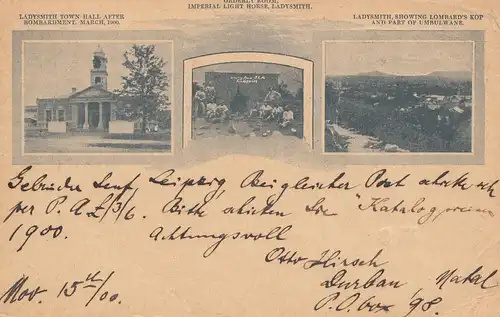 ORDERLY ROOM,
IMPERIAL LIGHT HORSE, LADYSMITH.
LADYSMITH TOWN HALL AFTER
BOMBARDMENT. MARCH, 1900.
LADYSMITH, SHOWING LOMBARD'S KOP
AND PART OF UMBULWANE.
Gebrüder Senf, Leipzig, Bei gleicher Post schicke ich
per P. A. £/3/6. Bitte schicken Sie "Katalog
1900. Achtungsvoll
Otto Hirsch
Durban Natal
Nov. 15th/00. P.O. box 98.